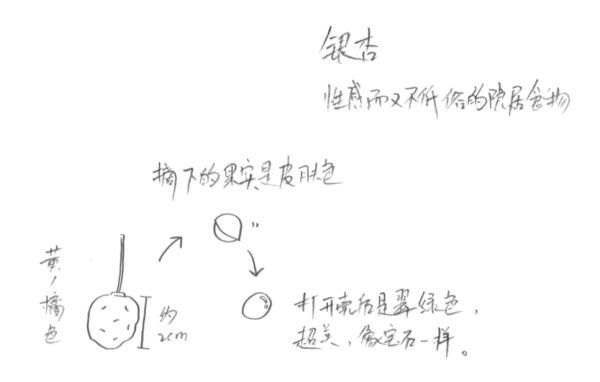 银杏
性感而又不低俗的院居食物
摘下的果实是皮肤色
黄/橘色
约
2cm
打开壳后是翠绿色，
超美，像宝石一样。